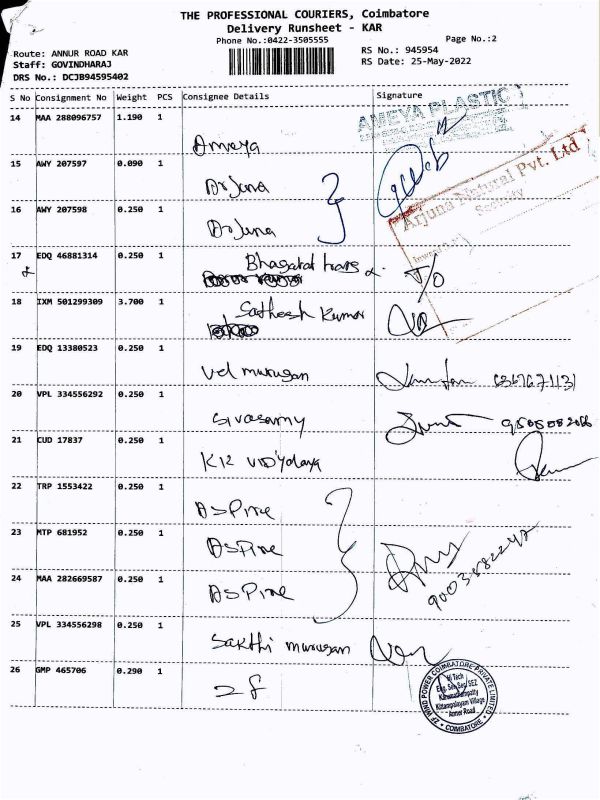 THE PROFESSIONAL COURIERS, Coimbatore
Delivery Runsheet - KAR
Phone No.:0422-3505555
Page No.:2
Route: ANNUR ROAD KAR
RS No.: 945954
Staff: GOVINDHARAJ
RS Date: 25-May-2022
DRS No.: DCJB94595402
S No Consignment No Weight PCS Consignee Details Signature
14 MAA 288096757 1.190 1
AMEYA PLASTIC
Ameya
15 AWY 207597 0.090 1
Arjuna
Arjuna Natural Pvt. Ltd
Security
16 AWY 207598 0.250 1
Arjuna
17 EDQ 46881314 0.250 1
Bhagatat trans
T/O
18 IXM 501299309 3.700 1
Sathesh Kumar
19 EDQ 13380523 0.250 1
vel murugan
20 VPL 334556292 0.250 1
Sivasamy
21 CUD 17837 0.250 1
K12 vidyalaya
22 TRP 1553422 0.250 1
Aspire
23 MTP 681952 0.250 1
Aspire
24 MAA 282669587 0.250 1
Aspire
25 VPL 334556298 0.250 1
Sakthi murugan
26 GMP 465706 0.290 1
ZF
ZF WIND POWER COIMBATORE PRIVATE LIMITED
Hi Tech
Kittampalayam Village
Annur Road
COIMBATORE